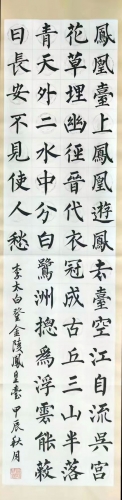 鳳凰臺上鳳凰遊鳳去臺空江自流吳宮
花草埋幽徑晉代衣冠成古丘三山半落
青天外二水中分白鷺洲摠爲浮雲能蔽
日長安不見使人愁
李太白登金陵鳳凰臺 甲辰秋月